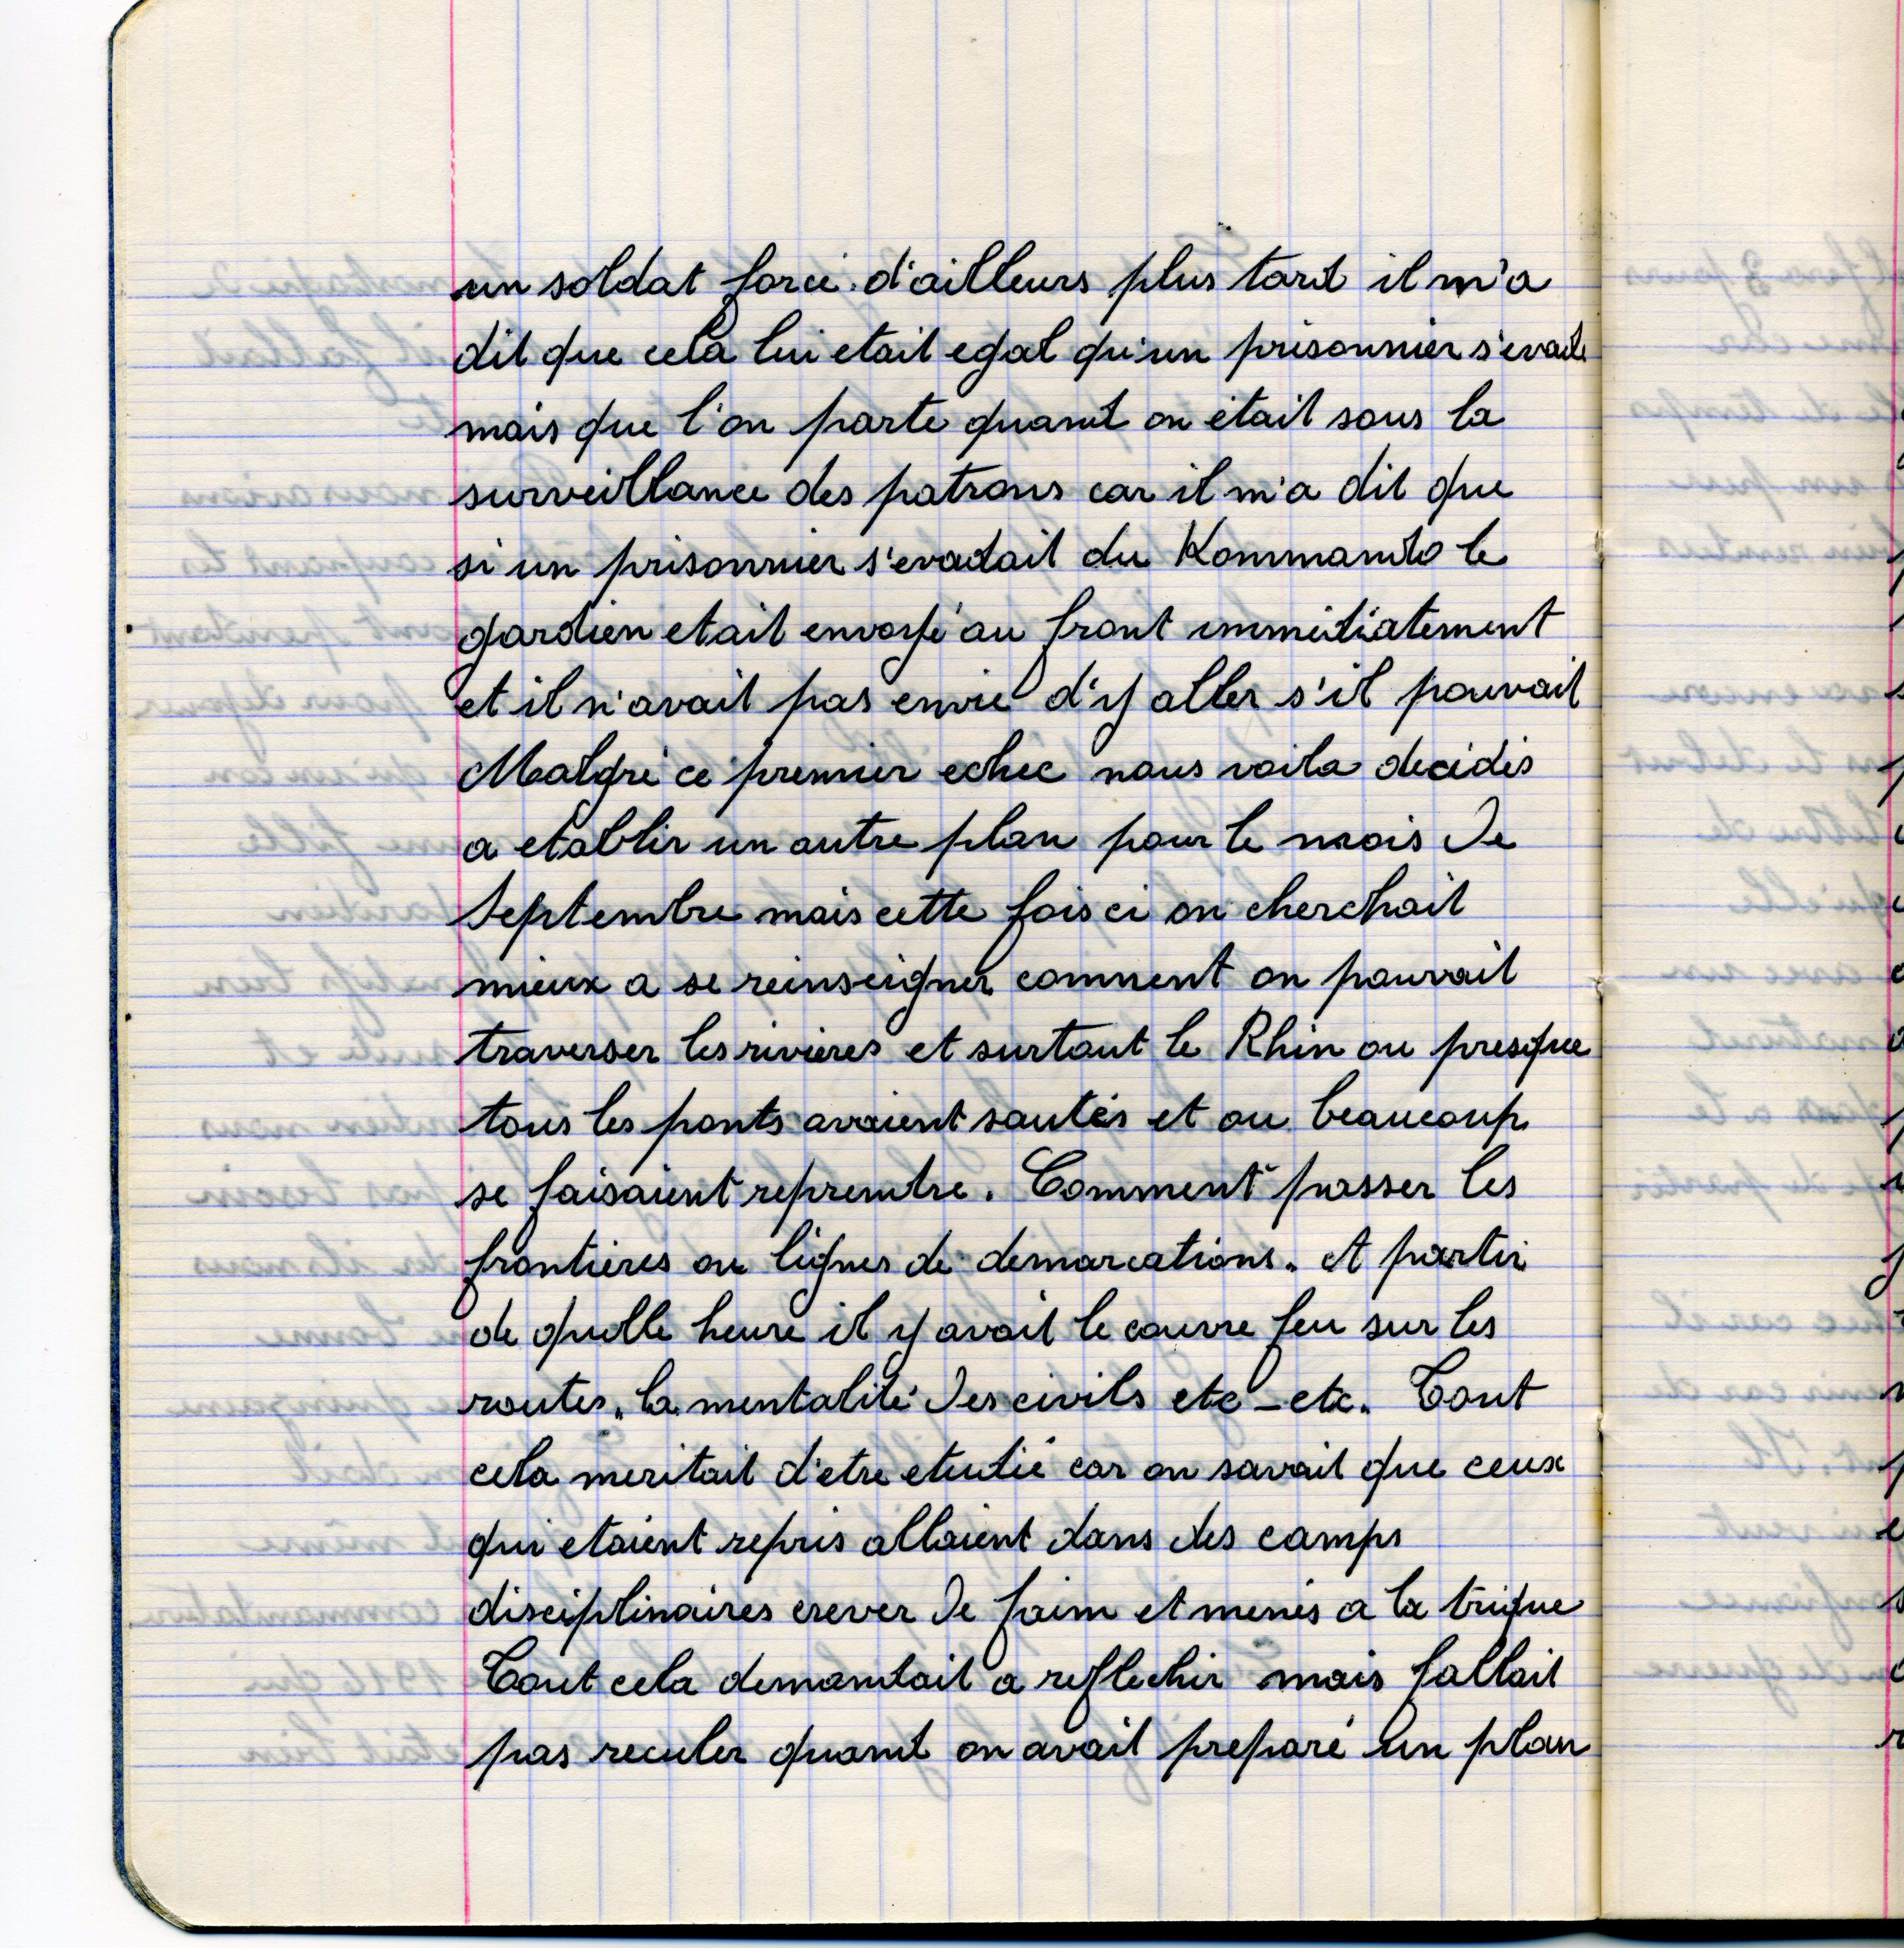 un soldat forcé. d'ailleurs plus tard il m'a
dit que cela lui etait egal qu'un prisonnier s'evade
mais que l'on parte quand on était sous la
surveillance des patrons car il m'a dit que
si un prisonnier s'evadait du Kommando le
gardien etait envoyé au front immédiatement
et il n'avait pas envie d'y aller s'il pouvait
Malgré ce premier echec nous voila decidés
a etablir un autre plan pour le mois de
Septembre mais cette fois ci on cherchait
mieux a se reinseigner comment on pouvait
traverser les rivieres et surtout le Rhin ou presque
tous les ponts avaient sautés et ou beaucoup
se faisaient reprendre. Comment passer les
frontières ou lignes de demarcations. et partir
de quelle heure il y avait le couvre feu sur les
routes, la mentalité des civils etc - etc. Tout
cela meritait d'etre etudié car on savait que ceux
qui etaient repris allaient dans des camps
disciplinaires crever de faim et menés a la trique
Tout cela demandait a reflechir mais fallait
pas reculer quand on avait preparé un plan